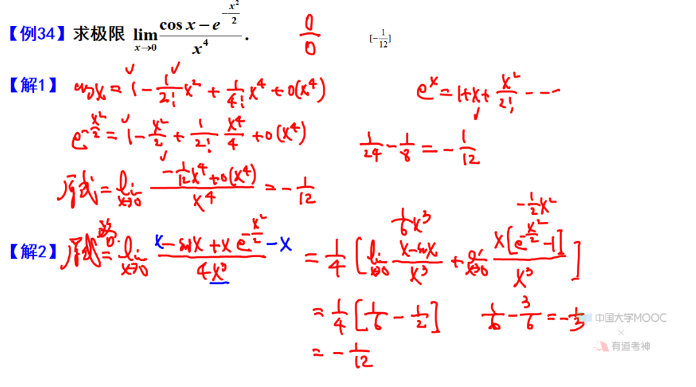 【例34】求极限 $\lim_{x \to 0} \frac{\cos x - e^{-\frac{x^2}{2}}}{x^4}$ . $\frac{0}{0}$ $[-\frac{1}{12}]$
【解1】 $\cos x = 1 - \frac{1}{2!}x^2 + \frac{1}{4!}x^4 + o(x^4)$ $e^x = 1 + x + \frac{x^2}{2!} \cdots$
$e^{-\frac{x^2}{2}} = 1 - \frac{x^2}{2} + \frac{1}{2!}\frac{x^4}{4} + o(x^4)$ $\frac{1}{24} - \frac{1}{8} = -\frac{1}{12}$
原式 $= \lim_{x \to 0} \frac{-\frac{1}{12}x^4 + o(x^4)}{x^4} = -\frac{1}{12}$
【解2】 原式 洛 $= \lim_{x \to 0} \frac{x - \sin x + x e^{-\frac{x^2}{2}} - x}{4x^3} = \frac{1}{4}\left[\lim_{x \to 0} \frac{x - \sin x}{x^3} + \lim_{x \to 0} \frac{x[e^{-\frac{x^2}{2}} - 1]}{x^3}\right]$ $\frac{1}{6}x^3$ $-\frac{1}{2}x^2$
$= \frac{1}{4}\left[\frac{1}{6} - \frac{1}{2}\right]$ $\frac{1}{6} - \frac{3}{6} = -\frac{1}{3}$
$= -\frac{1}{12}$
中国大学MOOC
×
有道考神